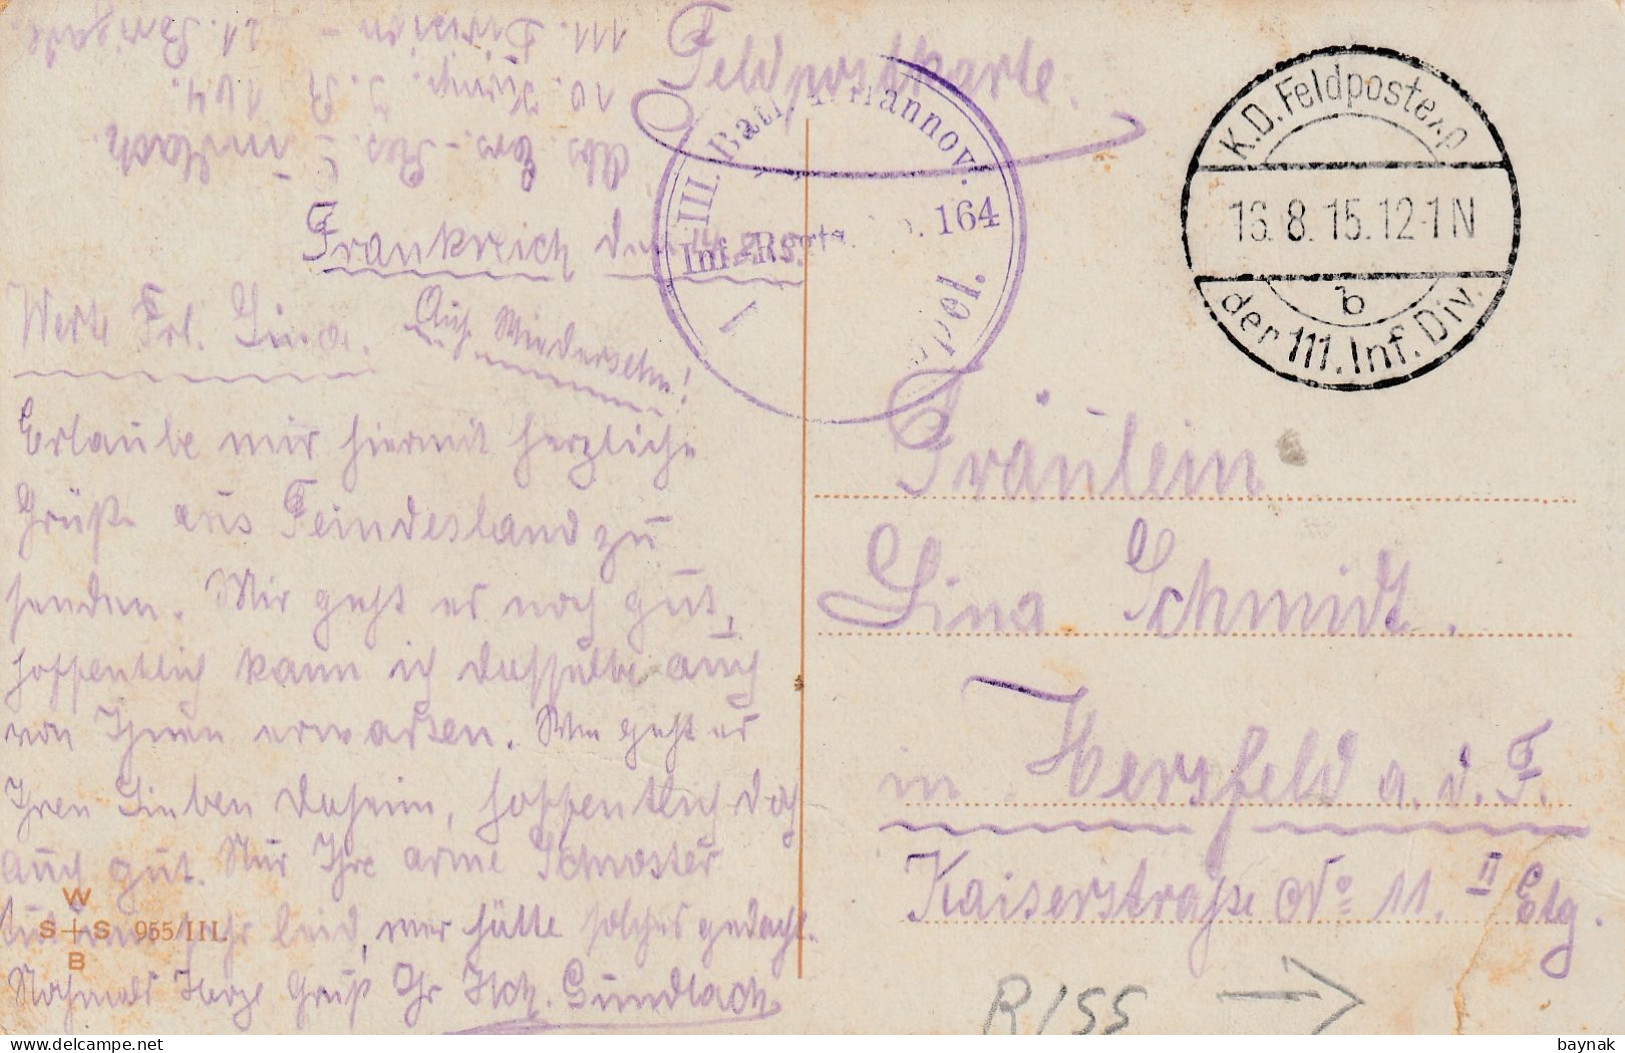 Feldpostkarte.
111. Division - 221. Brigade.
10. Komp. I. R 164.
Abs. Ers.-Res. Gundlach.
III. Batl. 4. Hannov.
Inf.-Rgts. No. 164
K.D. Feldpostexp
16.8.15.12-1N
b
der 111. Inf. Div.
Frankreich den
Werte Frl. Lina.
Auf Wiedersehn!
Erlaube mir hiermit herzliche
Grüße aus Feindesland zu
senden. Mir geht es noch gut,
hoffentlich kann ich dasselbe auch
von Ihnen erwarten. Wie geht es
Ihren Lieben daheim, hoffentlich doch
auch gut. Nur Ihre arme Schwester
tut mir sehr leid, wer hätte solches gedacht.
Nochmals Herzl. Gruß Ihr Hch. Gundlach
Fräulein
Lina Schmidt.
in Hersfeld a. d. F.
Kaiserstraße No 11. II Etg.
W
S S 955/III.
B
RISS →
baynak